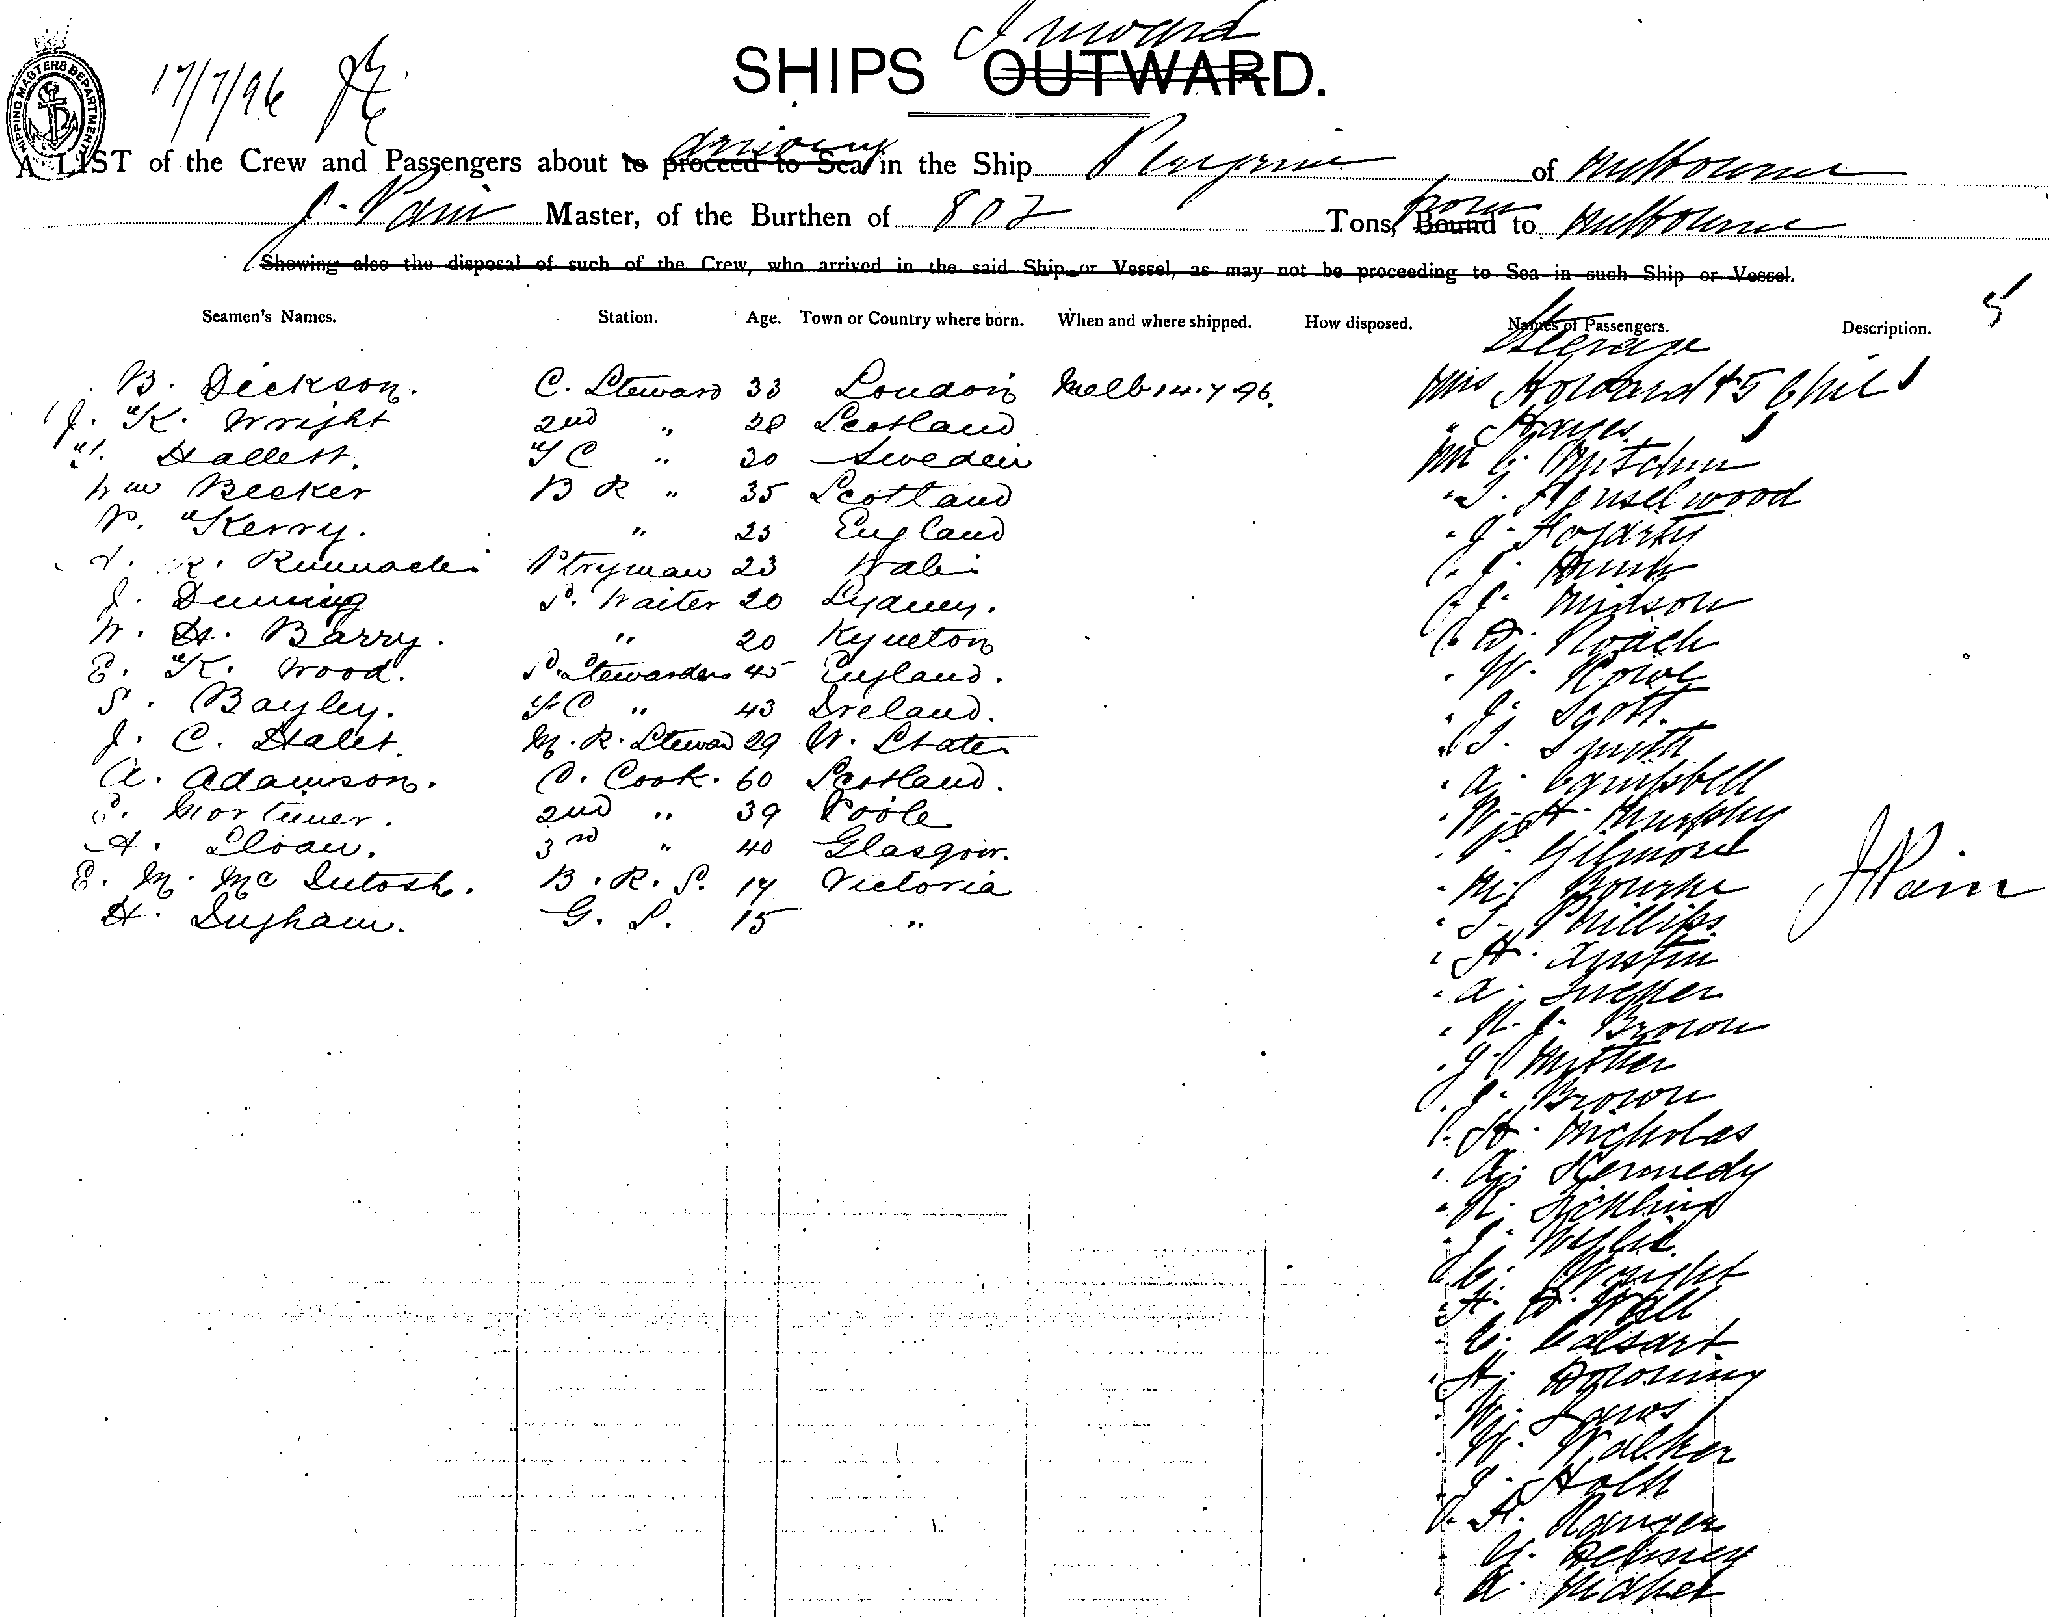 Inward
SHIPS OUTWARD.
SHIPPING MASTERS DEPARTMENT
17/7/96
arriving
A LIST of the Crew and Passengers about to proceed to Sea in the Ship Peregrine of Melbourne
from
J. Pain Master, of the Burthen of 802 Tons, Bound to Melbourne
Showing also the disposal of such of the Crew, who arrived in the said Ship or Vessel, as may not be proceeding to Sea in such Ship or Vessel.
5
Seamen's Names. Station. Age. Town or Country where born. When and where shipped. How disposed. Names of Passengers. Description.
Steerage
B. Dickson. C. Steward 33 London Melb 14.7.96. Mrs Howard & 5 Chil
J. K. Wright 2nd " 28 Scotland " Hayes
Hallett. " 30 Sweden Mr G.
Wm Becker B R " 35 Scotland " Hanselwood
P. Kerry. " 25 England " J. Fogarty
Ptryman 23 Wales " J.
J. Dunning P. Waiter 20 Sydney. " J. Midson
W. H. Barry. " 20 Kyneton " D. Roach
E. K. Wood. S. Stewardess 45 England. " W. Rowe
S. Bayley. " 43 Ireland. " J. Scott.
J. C. Halet. M. R. Steward 29 U. States " T. Smith
A. Adamson. C. Cook. 60 Scotland. " A. Campbell
Mortimer. 2nd " 39 Poole " W. H. Murphy
A. Sloan. 3rd " 40 Glasgow. " P. Gilmore
E. M. McIntosh. B. R. S. 17 Victoria " M. Bourke
H. Ingham. G. S. 15 " " T. Phillips.
J Pain
" H. Austin
" A.
" R. J. Brown
" J.
" J. Brown
" H. Nicholas
" A. Kennedy
" R.
" J. Wyllie.
" C. Wright
" H. D. Wall
" C.
" H. Downing
" W. Laws
" W. Walker
" J. Holt
" H. Ranger
" G.
" A.